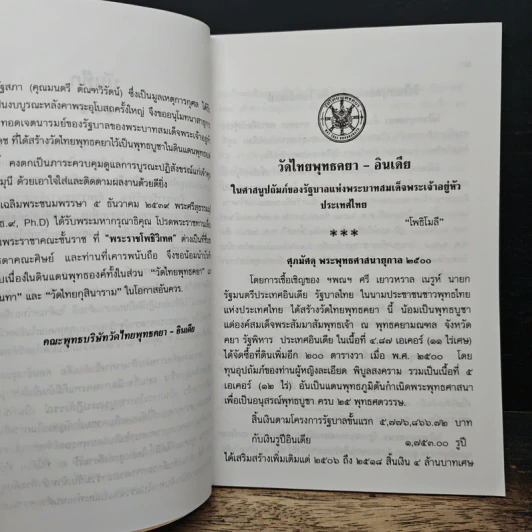 ฐสภา (คุณมนตรี ตัณฑวิรัตน์) ซึ่งเป็นมูลเหตุการกุศล ได้
นงบบูรณะหลังคาพระอุโบสถครั้งใหญ่ จึงขออนุโมทนาสาธุการ
ทอดเจตนารมย์ของรัฐบาลของพระบาทสมเด็จพระเจ้าอยู่หัว
ที่ได้สร้างวัดไทยพุทธคยาไว้เป็นพุทธบูชาในดินแดนพุทธ
คงตกเป็นภาระควบคุมดูแลการบูรณะปฏิสังขรณ์แก่
มุนี ด้วยเอาใจใส่และติดตามผลงานด้วยดียิ่ง
เฉลิมพระชนมพรรษา ๕ ธันวาคม ๒๕๓๙ พระศรี
ธ.๙, Ph.D) ได้รับพระมหากรุณาธิคุณ โปรดพระราชทาน
พระราชาคณะชั้นราช ที่ "พระราชโพธิวิเทศ" ต่างเป็นที่
ดาคณะศิษย์ และท่านที่เคารพนับถือ จึงขอน้อมนำ
บเนื่องในดินแดนพุทธองค์ทั้งในส่วน "วัดไทยพุทธคยา"
นทา" และ "วัดไทยกุสินาราม" ในโอกาสอันควร.
คณะพุทธบริษัทวัดไทยพุทธคยา - อินเดีย
วัดไทยพุทธคยา - อินเดีย
ในศาสนูปถัมภ์ของรัฐบาลแห่งพระบาทสมเด็จพระเจ้าอยู่หัว
ประเทศไทย
"โพธิโมลี"
***
ศุภมัศดุ พระพุทธศาสนายุกาล ๒๕๐๐
โดยการเชื้อเชิญของ ฯพณฯ ศรี เยาวหราล เนรูห์ นายก
รัฐมนตรีประเทศอินเดีย รัฐบาลไทย ในนามประชาชนชาวพุทธไทย
แห่งประเทศไทย ได้สร้างวัดไทยพุทธคยา นี้ น้อมเป็นพุทธบูชา
แด่องค์สมเด็จพระสัมมาสัมพุทธเจ้า ณ พุทธคยามณฑล จังหวัด
คยา รัฐพิหาร ประเทศอินเดีย ในเนื้อที่ ๔.๘๗ เอเคอร์ (๑๑ ไร่เศษ)
ได้จัดซื้อที่ดินเพิ่มอีก ๒๐๐ ตารางวา เมื่อ พ.ศ. ๒๕๐๐ โดย
ทุนอุปถัมภ์ของท่านผู้หญิงละเอียด พิบูลสงคราม รวมเป็นเนื้อที่ ๕
เอเคอร์ (๑๒ ไร่) อันเป็นแดนพุทธภูมิต้นกำเนิดพระพุทธศาสนา
เพื่อเป็นอนุสรณ์พุทธบูชา ครบ ๒๕ พุทธศตวรรษ.
สิ้นเงินตามโครงการรัฐบาลชั้นแรก ๕,๗๗๖,๘๖๖.๗๒ บาท
กับเงินรูปีอินเดีย ๑,๗๕๓.๐๐ รูปี
ได้เสริมสร้างเพิ่มเติมแต่ ๒๕๐๖ ถึง ๒๕๑๘ สิ้นเงิน ๔ ล้านบาทเศษ